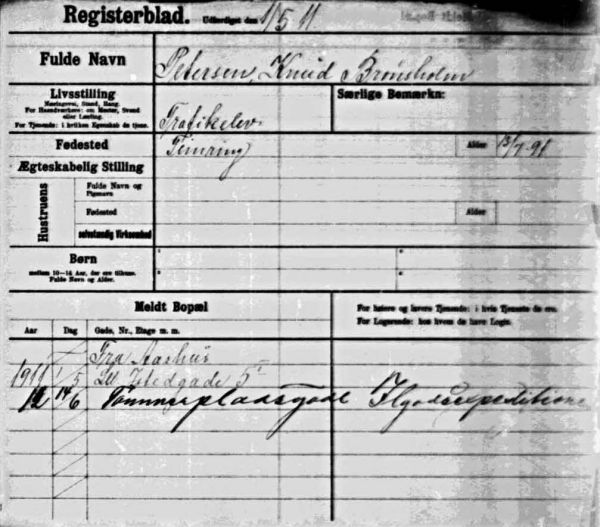 Registerblad. Udfærdiget den 1/5 11
Fulde Navn Petersen, Knud Brønsholm
Livsstilling
Næringsvej, Stand, Rang.
For Haandværkere: om Mester, Svend
eller Lærling.
For Tjenende: i hvilken Egenskab de tjene.
Trafikelev
Særlige Bemærkn:
Fødested Timring Alder 13/7 91
Ægteskabelig Stilling
Hustruens
Fulde Navn og
Pigenavn
Fødested Alder
selvstændig Virksomhed
Børn
mellem 10-14 Aar, der ere tilhuse.
Fulde Navn og Alder.
Meldt Bopæl
For højere og lavere Tjenende: i hvis Tjeneste de ere.
For Logerende: hos hvem de have Logis.
Aar Dag Gade, Nr., Etage m. m.
Fra Aarhus
1911 1/5 Ll 5
12 14/6 Tømmerpladsgade Ilgodsexpeditionen